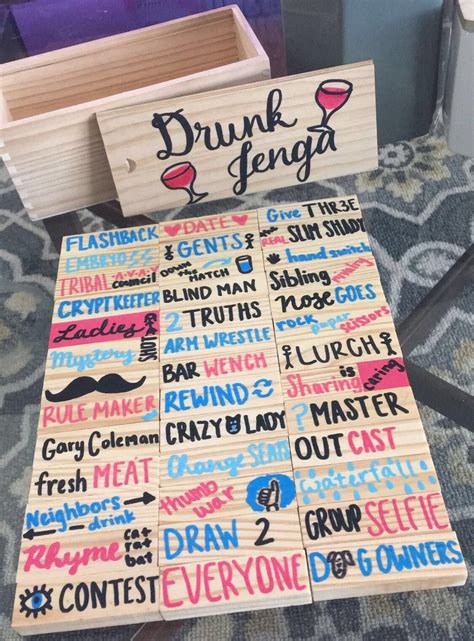 Drunk
Jenga
FLASHBACK
EMBRYO
TRIBAL
council
CRYPTKEEPER
Ladies
Mystery
RULE MAKER
Gary Coleman
fresh MEAT
Neighbors
drink
Rhyme cat
rat
bat
CONTEST
DATE
GENTS
Down the
HATCH
BLIND MAN
2 TRUTHS
ARM WRESTLE
BAR WENCH
REWIND
CRAZY LADY
Change SEATS
thumb
war
DRAW 2
EVERYONE
Give THR3E
the REAL SLIM SHADY
hand switch
Sibling rivalry
Nose GOES
rock paper scissors
LURCH
Sharing is caring
? MASTER
OUT CAST
waterfall
GROUP SELFIE
DOG OWNERS